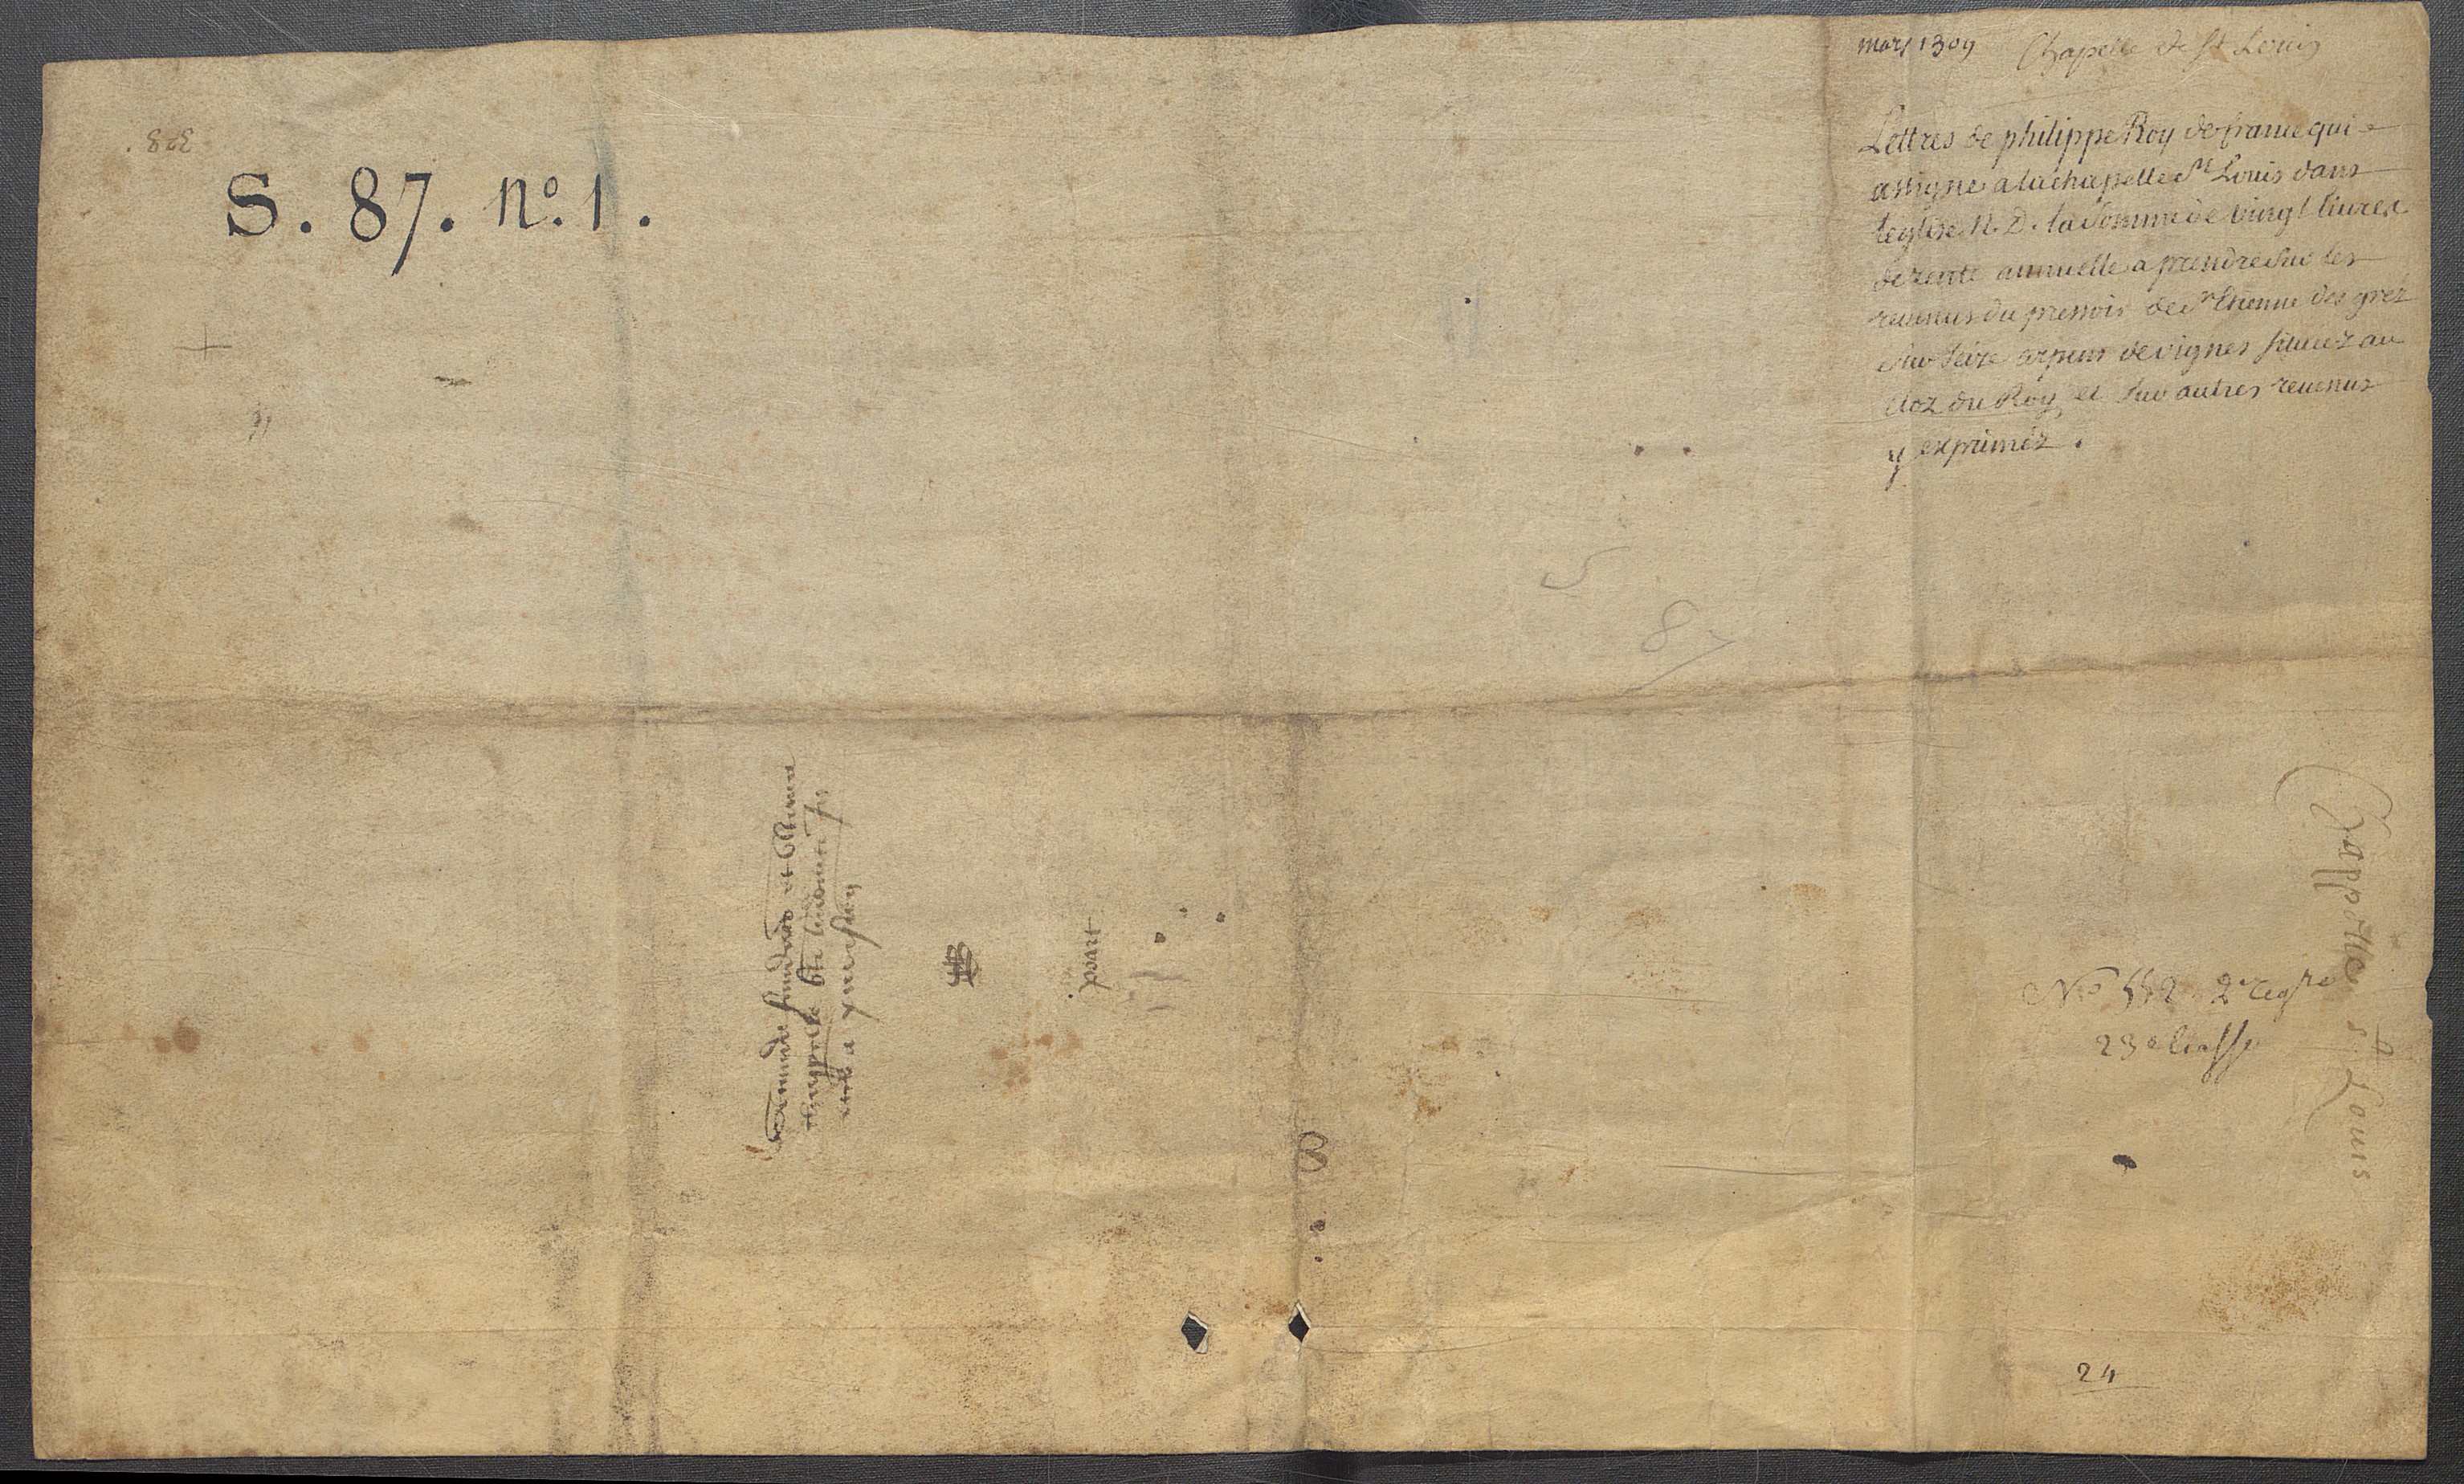 mars 1309 Chapelle de St Louis
Lettres de philippe Roy de france qui
assigne a la chapelle St Louis dans
leglise N. D. la somme de vingt livres
de rente annuelle a prendre sur les
revenus du pressoir de St Etienne des grez
sur seize arpens de vignes situez au
cloz du Roy et sur autres revenus
y exprimez .
328 .
S. 87. nº. 1 .
S
87
part
Chappelle St Louis
Nº 552 2e regre
23e liasse
24